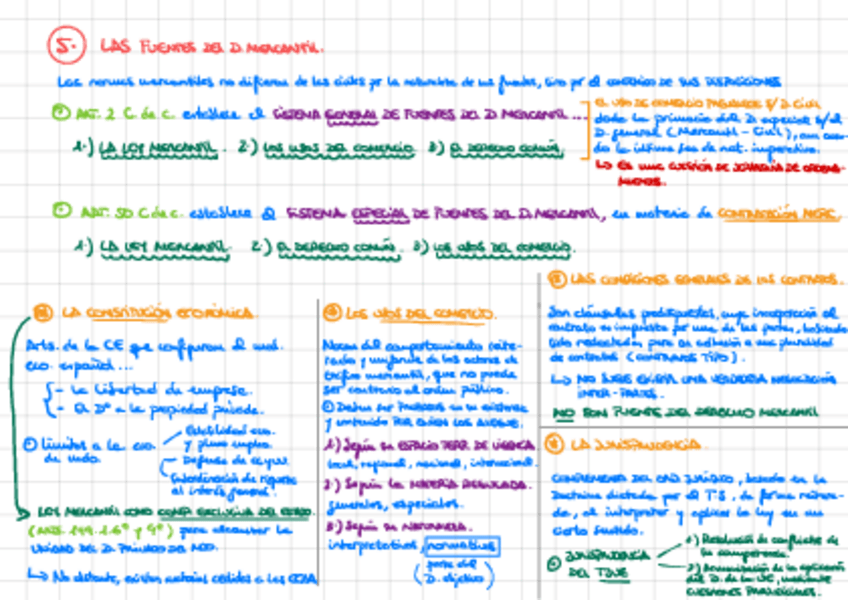 5. LAS FUENTES DEL D. MERCANTIL.
Las normas mercantiles no difieren de las civiles por la naturaleza de sus fuentes, sino por el contenido de sus DISPOSICIONES
ART. 2 C. de c. establece el SISTEMA GENERAL DE FUENTES DEL D. MERCANTIL...
1.) LA LEY MERCANTIL. 2.) LOS USOS DEL COMERCIO 3) EL DERECHO COMÚN.
EL USO DE COMERCIO D. CIVIL
dada la primacía del D. especial s/ el
D. general (Mercantil - Civil), aun
la última sea de nat. imperativa.
↳ ES UNE CUESTIÓN DE
ART. 50 C. de c. establece el SISTEMA ESPECIAL DE FUENTES DEL D. MERCANTIL, en materia de CONTRATACIÓN MERC.
1.) LA LEY MERCANTIL. 2.) EL DERECHO COMÚN. 3) LOS USOS DEL COMERCIO.
LA CONSTITUCIÓN ECONÓMICA.
Arts. de la CE que configuran el mod.
eco. español...
- La libertad de empresa.
- El Dº a la propiedad privada.
Límites a la eco.
de mdo.
Estabilidad eco.
y pleno empleo.
- Defensa de
Subordinación de riqueza
al interés general.
LEG. MERCANTIL COMO COMP. EXCLUSIVA DEL ESTADO.
(ARTS. 149.1.6º y 9º) para
UNIDAD DEL D. PRIVADO DEL
↳ No obstante, existen materias cedidas a las CCAA
LOS USOS DEL COMERCIO.
Norma del comportamiento reite-
rado y uniforme de los actores de
tráfico mercantil, que no puede
ser contrario al orden público.
Deben ser PROBADOS en su existencia
y contenido POR QUIEN LOS ALEGUE.
1.) Según su ESPACIO TERR. DE VIGENCIA
local, regional, nacional, internacional.
2.) Según la MATERIA REGULADA.
generales, especiales.
3.) Según su NATURALEZA.
interpretativos, normativos
(parte del
D. objetivo)
LAS CONDICIONES GENERALES DE LOS CONTRATOS.
Son cláusulas predispuestas, cuya incorporación al
contrato es impuesta por una de las partes, habiendo
sido redactadas para su adhesión a una pluralidad
de contratos (CONTRATOS TIPO).
↳ NO SUELE EXISTIR UNA VERDADERA NEGOCIACIÓN
INTER-PARTES.
NO SON FUENTE DEL DERECHO MERCANTIL
LA JURISPRUDENCIA.
COMPLEMENTO DEL ORD. JURÍDICO, basado en la
Doctrina dictada por el T.S. de forma reitera-
da, al interpretar y aplicar la ley en un
cierto sentido.
JURISPRUDENCIA
DEL TJUE
1) Resolución de conflictos de
su competencia.
2) de la aplicación
del D. de la UE, mediante
CUESTIONES PREJUDICIALES.